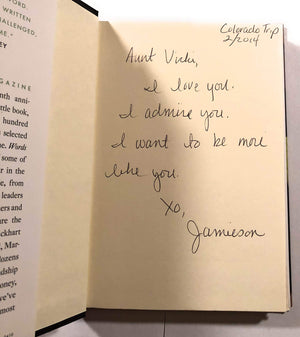 ORD.
WRITTEN
HALLENGED,
ME."
EY
GAZINE
nth anni-
ttle book,
hundred
selected
e. Words
some of
r in the
e, from
leaders
ers and
are the
ckhart
l, Mar-
dozens
ndship
oney,
we've
most
Colorado Trip
2/2014
Aunt Vicki,
I love you.
I admire you.
I want to be more
like you.
XO,
Jamieson